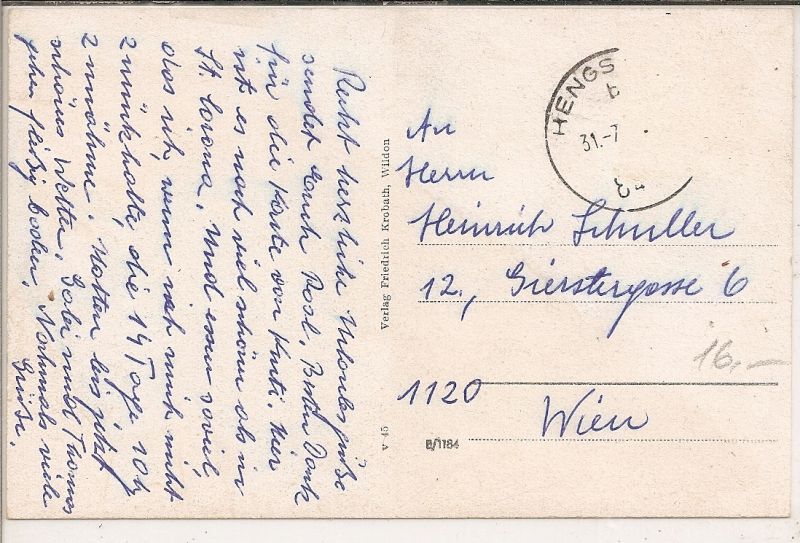 Recht herzliche Urlaubsgrüße
sendet Euch Besten Dank
für die Karte von Hier
ist es noch viel schöner als in
St. Corona. Und essen soviel,
das ich, wenn ich mich nicht
zurückhalte, die 14 Tage 10 k
zunähme. Hatten bis jetzt
schönes Wetter. Gabi und Thomas
gehen fleißig baden. Nochmals viele
Grüße.
Verlag Friedrich Krobath, Wildon
V 45
HENGS
b
31.-7
An
Herrn
Heinrich Schuller
12., Gierstergasse 6
16.—
1120
Wien
B/1184